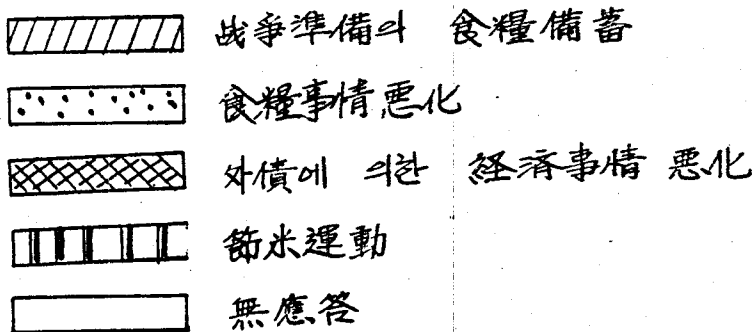 战爭準備의 食糧備蓄
食糧事情悪化
外債에 의한 経済事情 悪化
節米運動
無應答